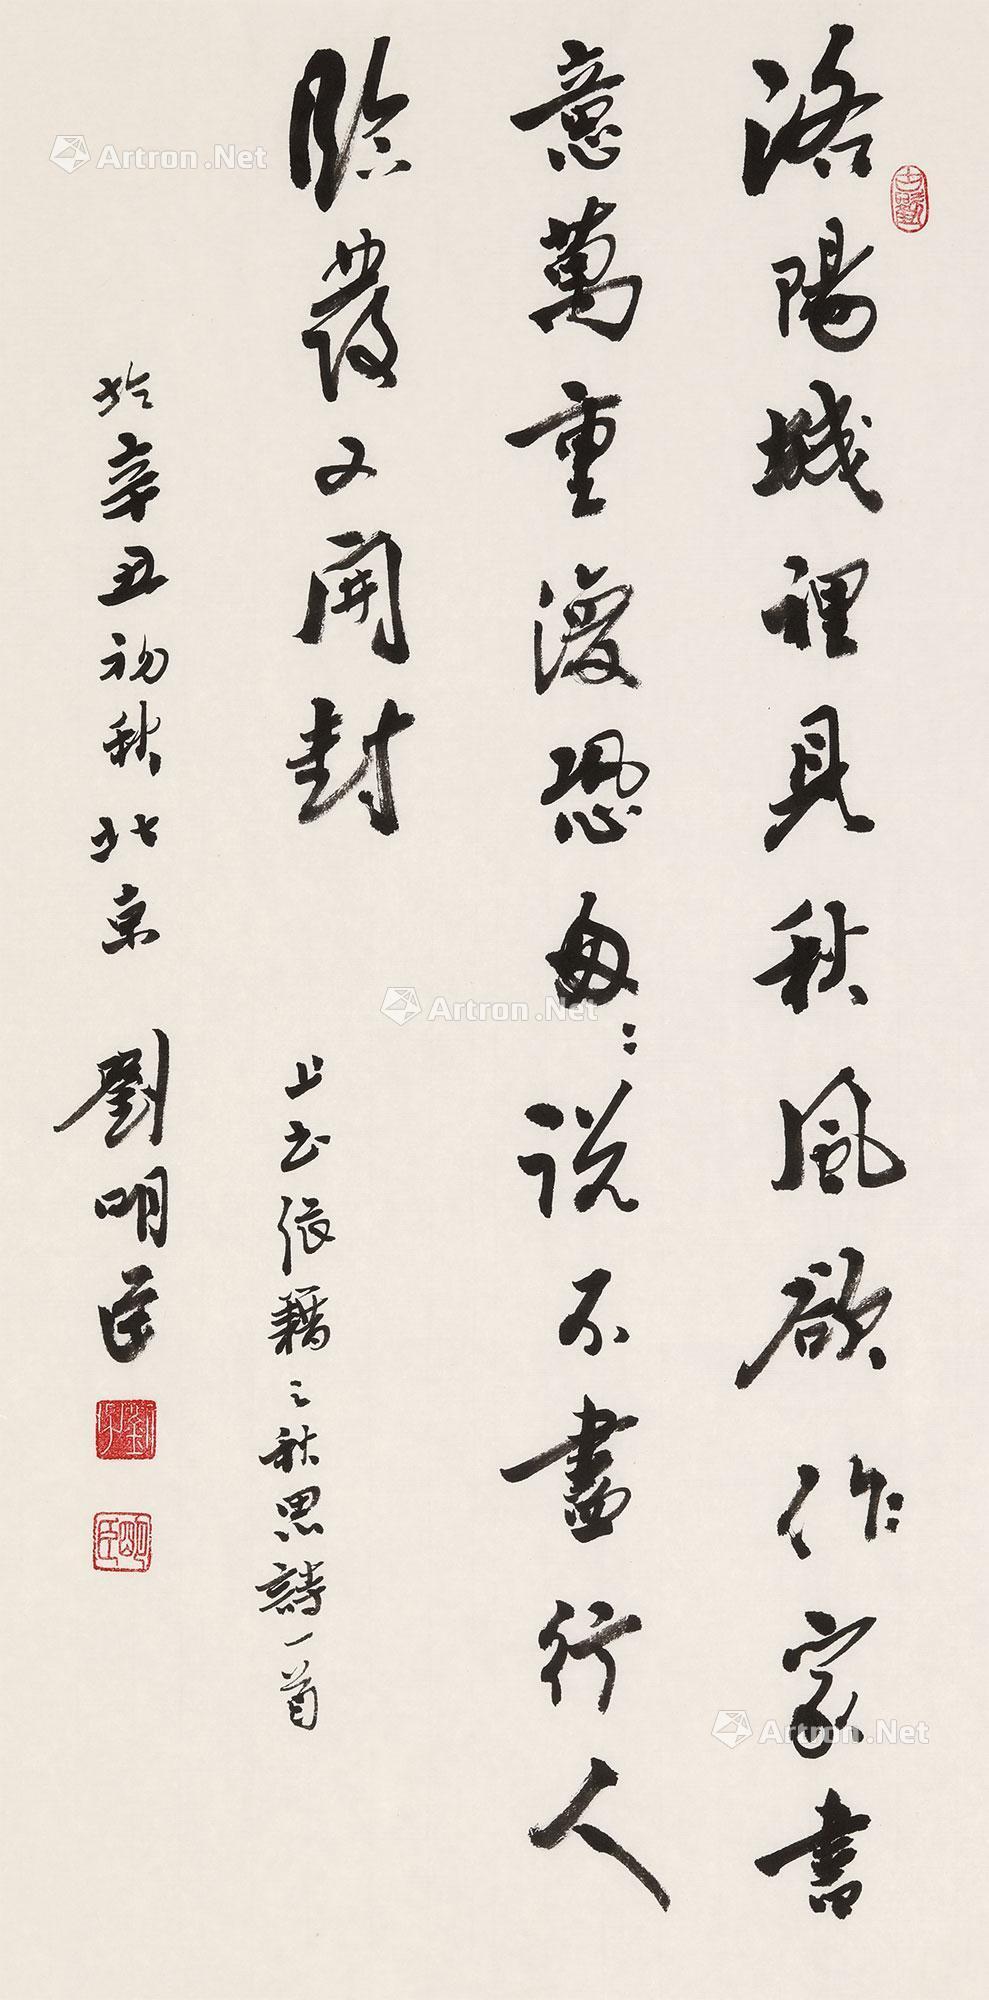 洛陽城裡見秋風欲作家書
意萬重復恐匆々說不盡行人
臨發又開封
上書張籍之秋思詩一首
於辛丑初秋北京 劉明臣
明臣
Artron.Net
Artron.Net
Artron.Net